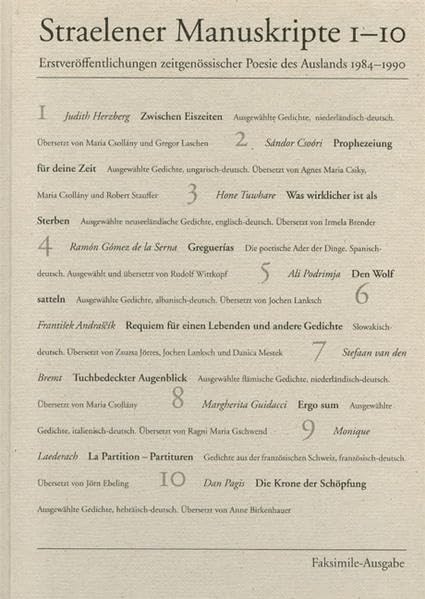 Straelener Manuskripte 1–10
Erstveröffentlichungen zeitgenössischer Poesie des Auslands 1984–1990
1 Judith Herzberg Zwischen Eiszeiten Ausgewählte Gedichte, niederländisch-deutsch.
Übersetzt von Maria Csollány und Gregor Laschen 2 Sándor Csoóri Prophezeiung
für deine Zeit Ausgewählte Gedichte, ungarisch-deutsch. Übersetzt von Agnes Maria Csiky,
Maria Csollány und Robert Stauffer 3 Hone Tuwhare Was wirklicher ist als
Sterben Ausgewählte neuseeländische Gedichte, englisch-deutsch. Übersetzt von Irmela Brender
4 Ramón Gómez de la Serna Greguerías Die poetische Ader der Dinge. Spanisch-
deutsch. Ausgewählt und übersetzt von Rudolf Wittkopf 5 Ali Podrimja Den Wolf
satteln Ausgewählte Gedichte, albanisch-deutsch. Übersetzt von Jochen Lanksch 6
František Andraščík Requiem für einen Lebenden und andere Gedichte Slowakisch-
deutsch. Übersetzt von Zsuzsa Jörres, Jochen Lanksch und Danica Mestek 7 Stefaan van den
Bremt Tuchbedeckter Augenblick Ausgewählte flämische Gedichte, niederländisch-deutsch.
Übersetzt von Maria Csollány 8 Margherita Guidacci Ergo sum Ausgewählte
Gedichte, italienisch-deutsch. Übersetzt von Ragni Maria Gschwend 9 Monique
Laederach La Partition – Partituren Gedichte aus der französischen Schweiz, französisch-deutsch.
Übersetzt von Jörn Ebeling 10 Dan Pagis Die Krone der Schöpfung
Ausgewählte Gedichte, hebräisch-deutsch. Übersetzt von Anne Birkenhauer
Faksimile-Ausgabe